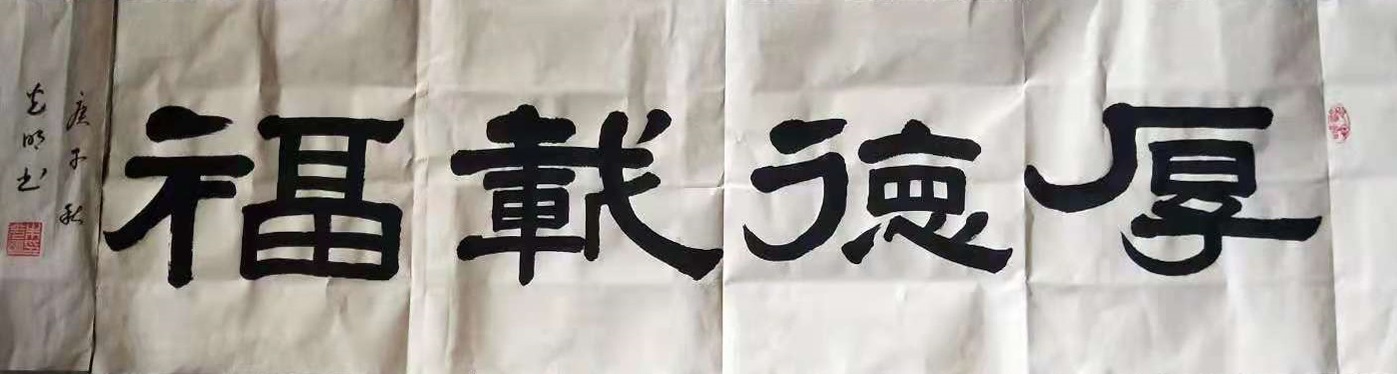 厚德載福
庚子秋
光明书